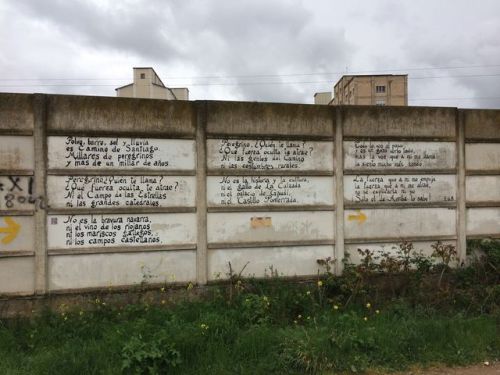 Polvo, barro, sol y lluvia
es Camino de Santiago.
Millares de peregrinos
y más de un millar de años.
Peregrino ¿Quién te llama?
¿Qué fuerza oculta te atrae?
Ni el Campo de las Estrellas
ni las grandes catedrales.
No es la bravura navarra,
ni el vino de los riojanos
ni los mariscos gallegos,
ni los campos castellanos.
Peregrino, ¿Quién te llama?
¿Qué fuerza oculta te atrae?
Ni las gentes del Camino
ni las costumbres rurales.
No es la historia y la cultura,
ni el gallo de La Calzada
ni el palacio de Gaudí,
ni el Castillo Ponferrada.
Todo lo veo al pasar,
y es un gozo verlo todo,
mas la voz que a mi me llama
la siento mucho más hondo.
La fuerza que a mi me empuja
la fuerza que a mi me atrae,
no sé explicarla ni yo
Solo el de Arriba lo sabe!